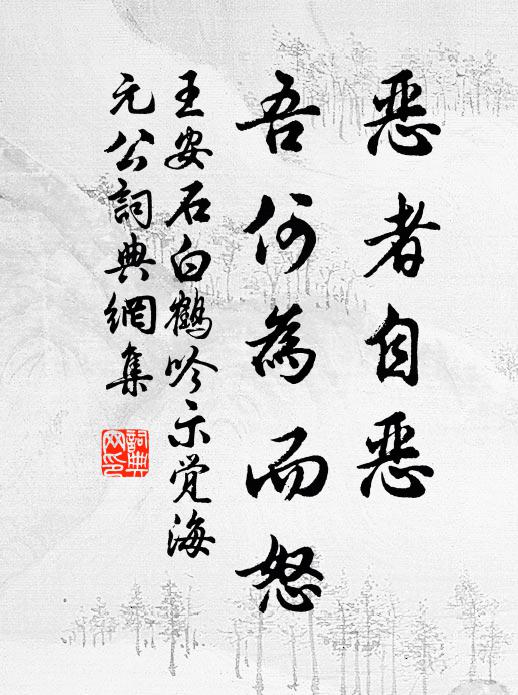 恶者自恶
吾何為而怒
王安石白鶴吟示觉海
元公詞典網集
詞典網印